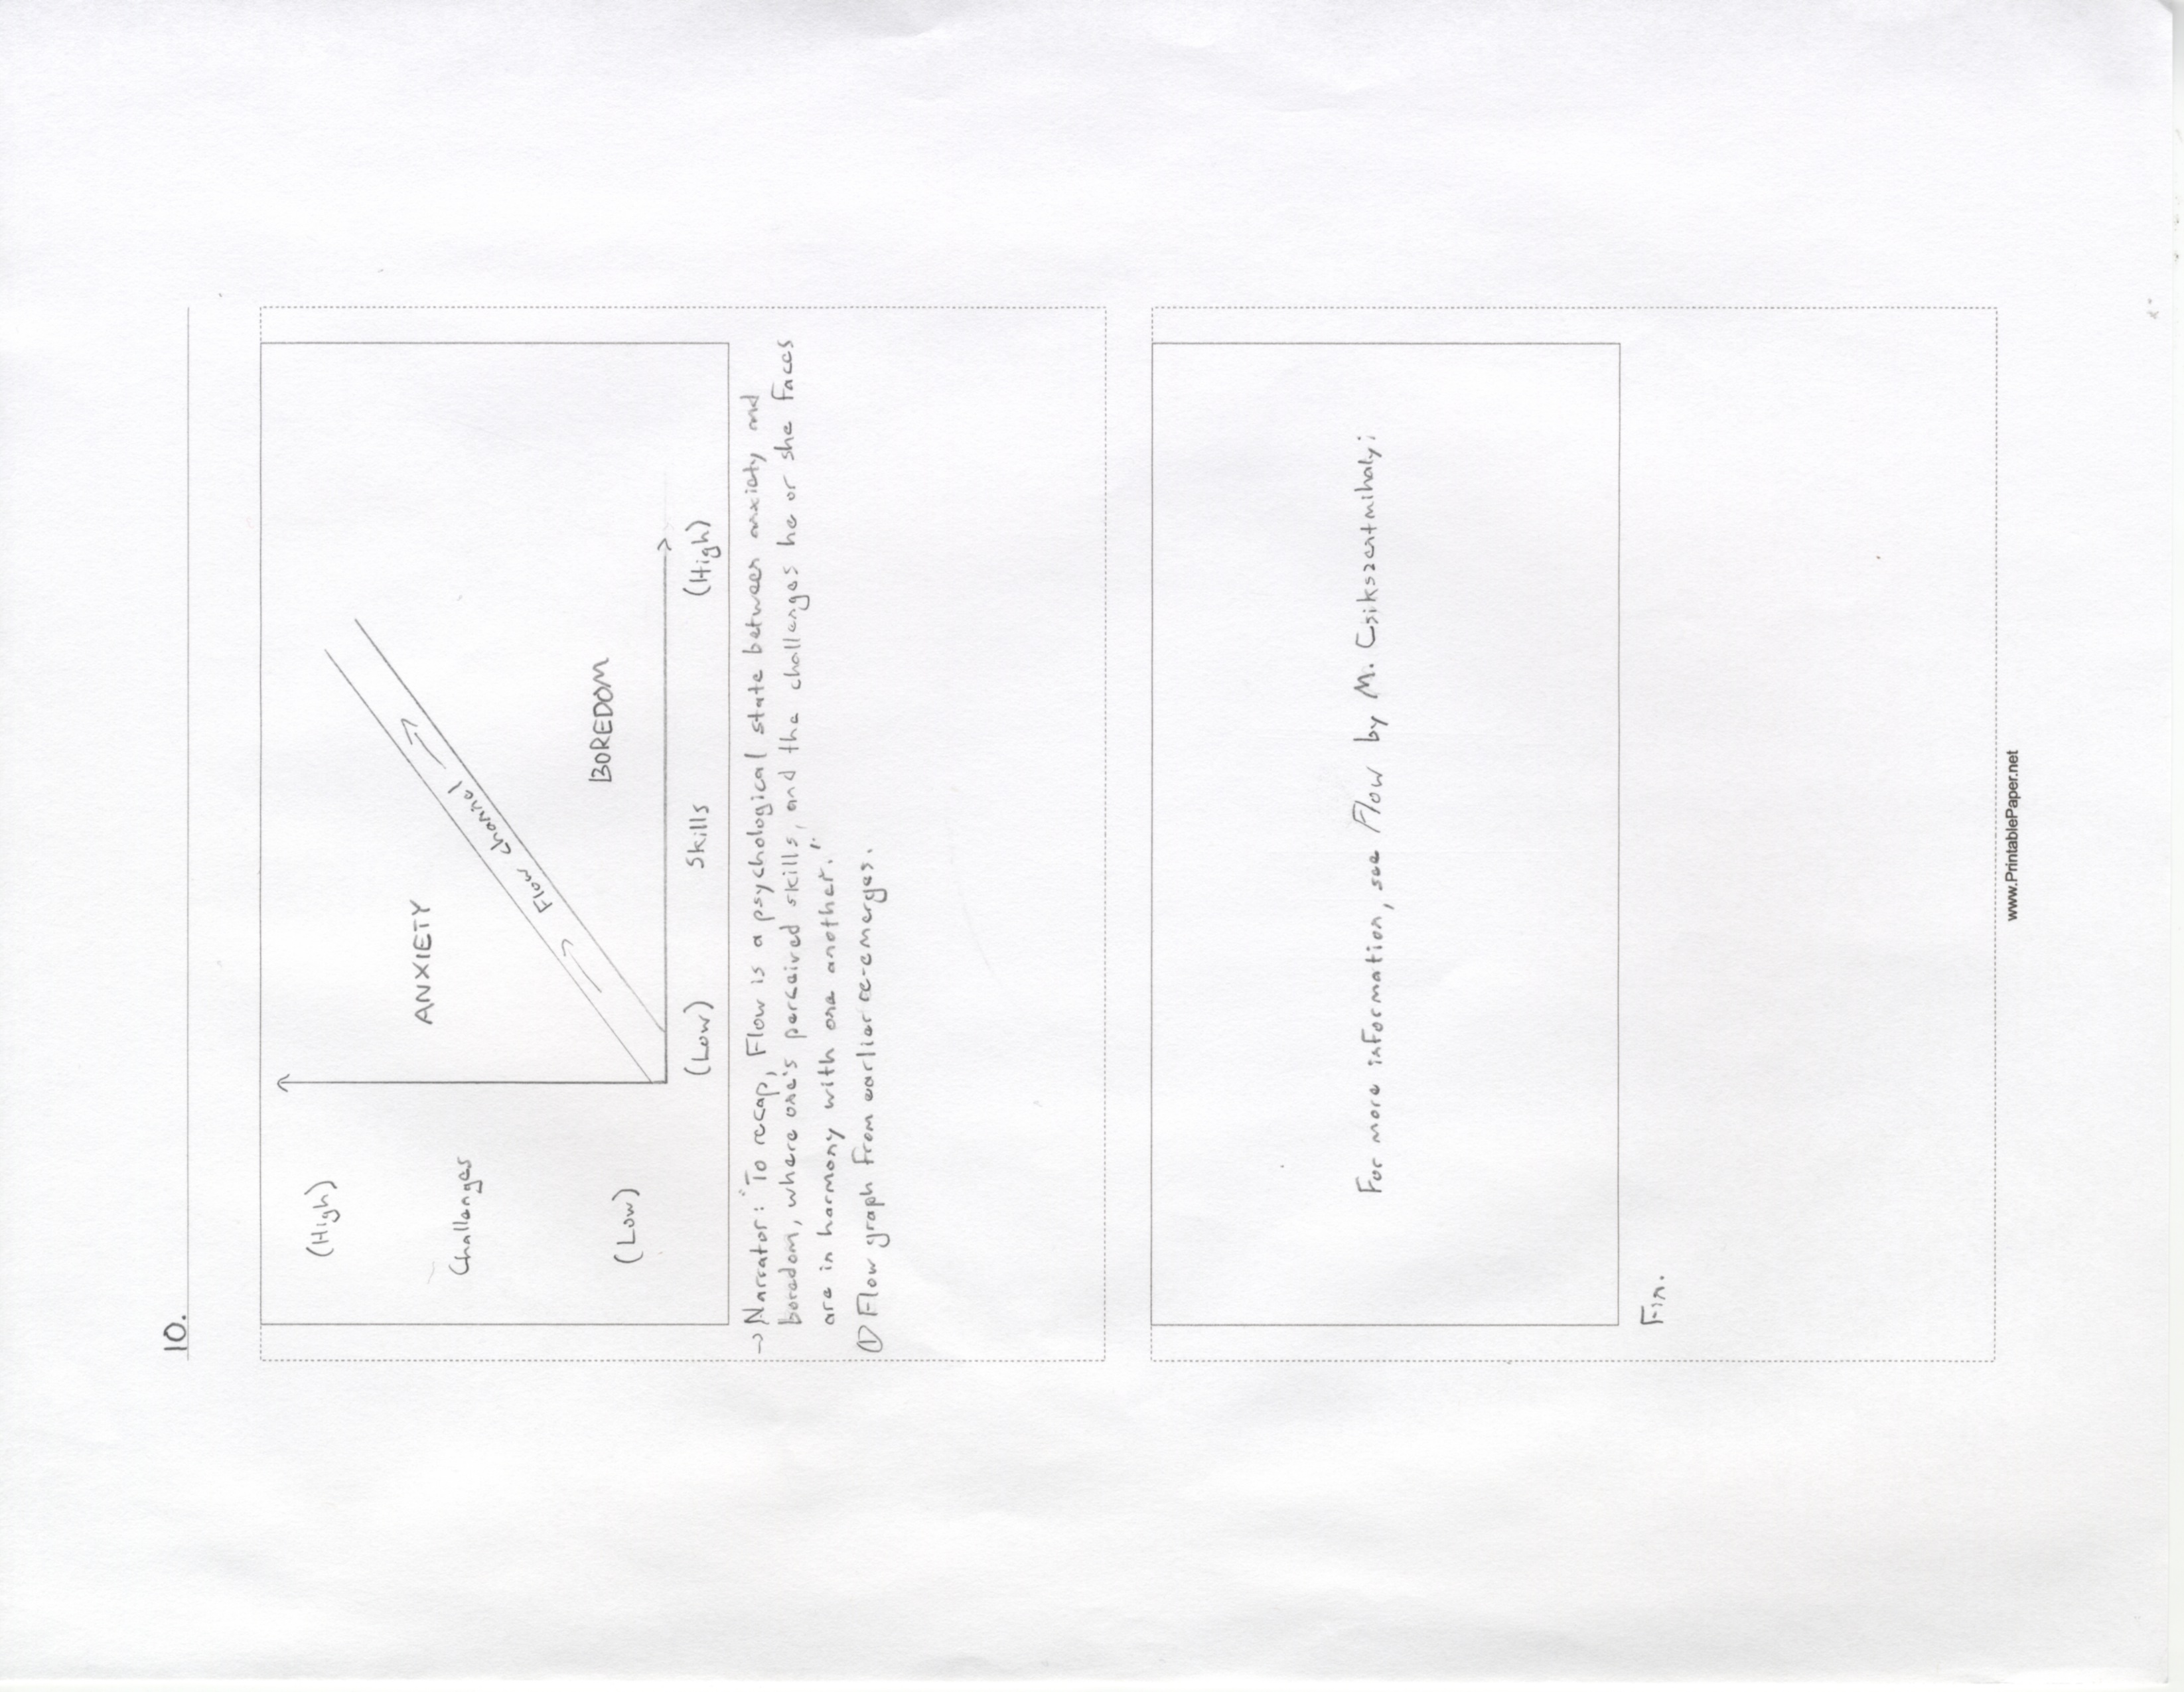 10.
(High)
Challenges
(Low)
ANXIETY
Flow channel
BOREDOM
(Low) Skills (High)
→ Narrator: "To recap, Flow is a psychological state between anxiety and
boredom, where one's perceived skills, and the challenges he or she faces
are in harmony with one another."
① Flow graph from earlier re-emerges.
For more information, see Flow by M. Csikszentmihalyi
Fin.
www.PrintablePaper.net